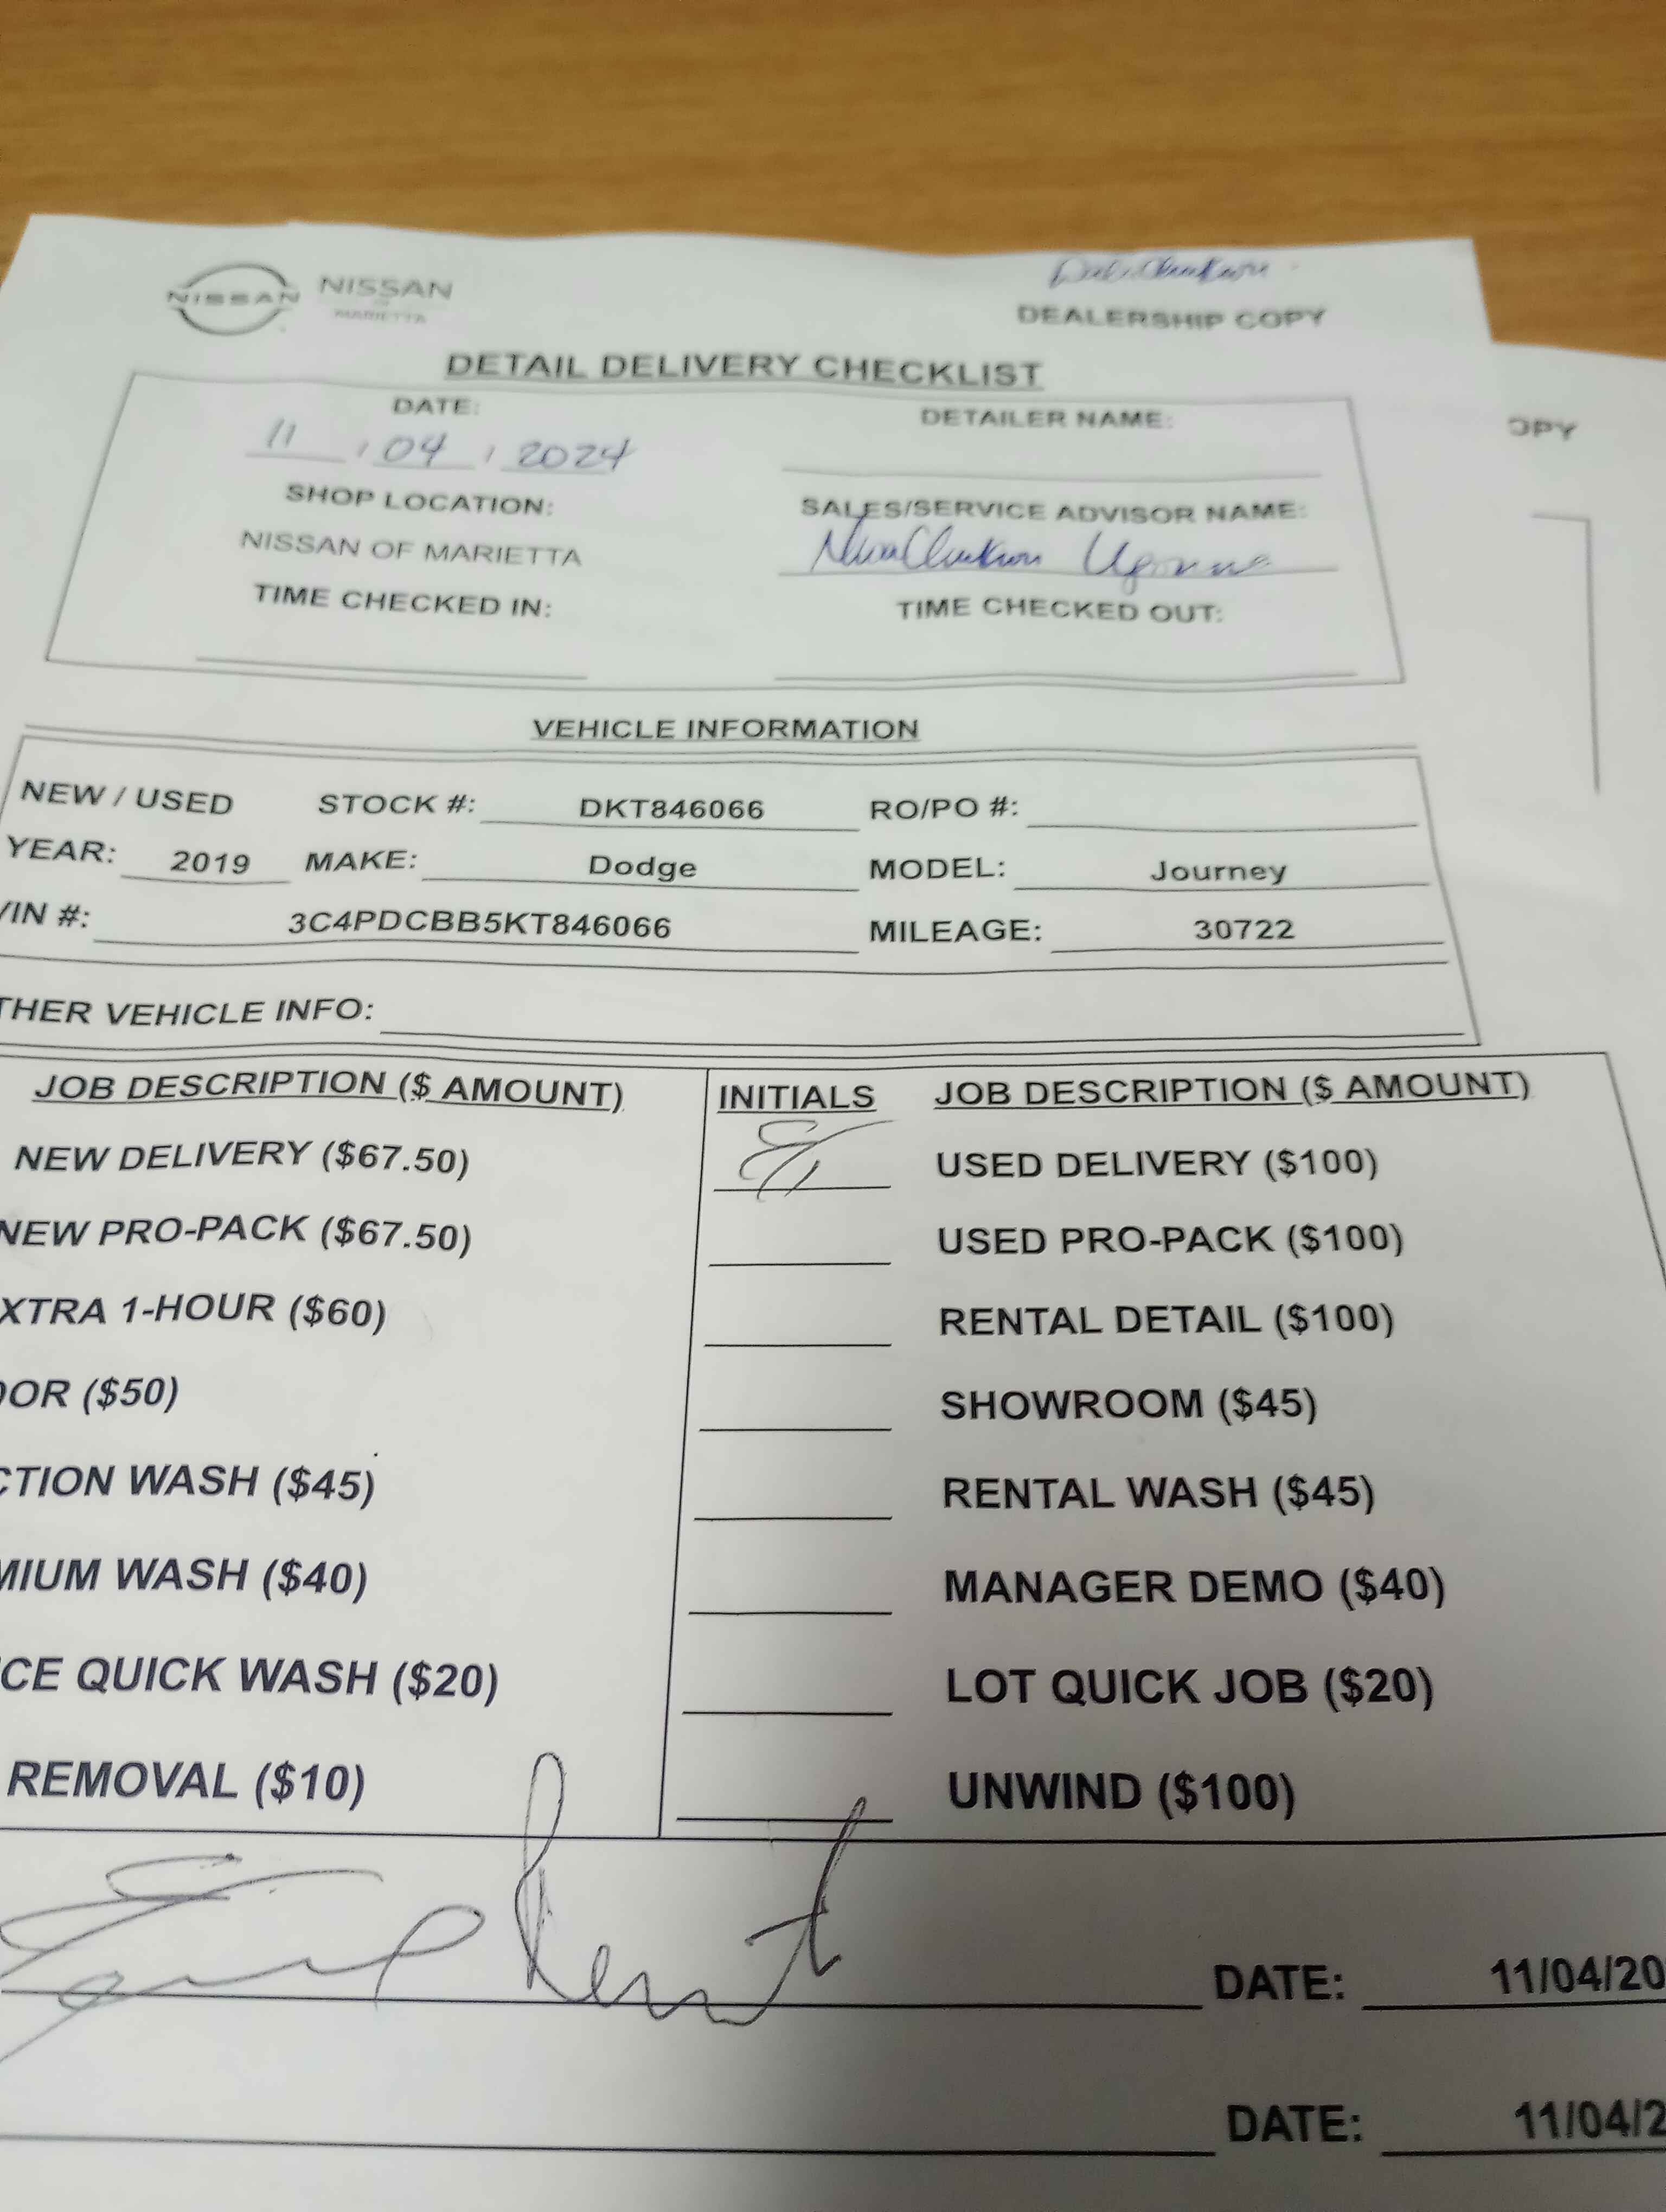 NISSAN NISSAN
OF
MARIETTA
DEALERSHIP COPY
OPY
DETAIL DELIVERY CHECKLIST
DATE: DETAILER NAME:
11 / 04 / 2024
SHOP LOCATION: SALES/SERVICE ADVISOR NAME:
NISSAN OF MARIETTA
TIME CHECKED IN: TIME CHECKED OUT:
VEHICLE INFORMATION
NEW / USED STOCK #: DKT846066 RO/PO #:
YEAR: 2019 MAKE: Dodge MODEL: Journey
VIN #: 3C4PDCBB5KT846066 MILEAGE: 30722
THER VEHICLE INFO:
JOB DESCRIPTION ($ AMOUNT) INITIALS JOB DESCRIPTION ($ AMOUNT)
NEW DELIVERY ($67.50) USED DELIVERY ($100)
NEW PRO-PACK ($67.50) USED PRO-PACK ($100)
XTRA 1-HOUR ($60) RENTAL DETAIL ($100)
OOR ($50) SHOWROOM ($45)
CTION WASH ($45) RENTAL WASH ($45)
MIUM WASH ($40) MANAGER DEMO ($40)
CE QUICK WASH ($20) LOT QUICK JOB ($20)
REMOVAL ($10) UNWIND ($100)
DATE: 11/04/20
DATE: 11/04/2